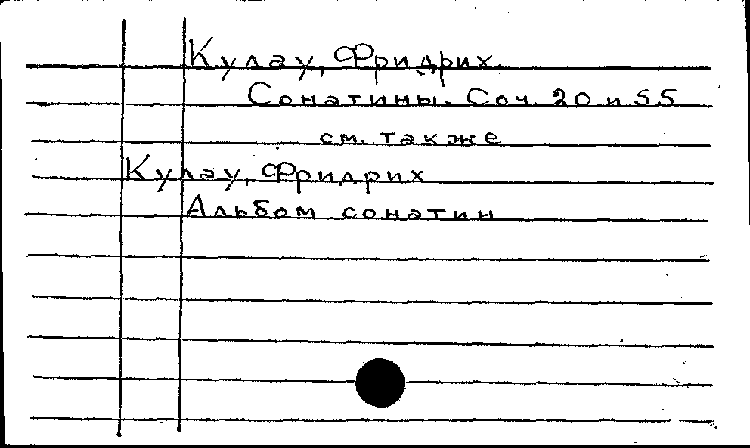 Кулау, Фридрих.
Сонатины. Соч. 20 и 55
см. также
Кулау, Фридрих
Альбом сонатин